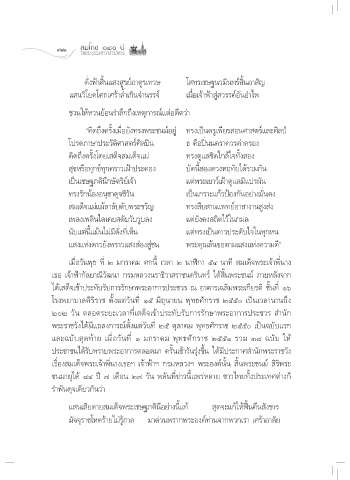 ๓๒๒ สมโภช ๑๔๑ ปี
ดั่งฟ้าสิ้นแสงสูรย์อาดูรเทวษ โศกทรงเชษฐนารินทร์สิ้นอาสัญ
แสนวิโยคโศกเศร้าล้ำเกินจำนรรจ์ เมื่อเจ้าฟ้าสู่สวรรค์อันอำไพ
ชวนให้หวนย้อนรำลึกถึงเหตุการณ์แต่อดีตว่า
"คิดถึงครั้งเมื่อยังทรงพระชนม์อยู่ ทรงเป็นครูเพียรสอนศาสตร์และศิลป์
โปรดภาษาประวัติศาสตร์ศิลปิน
คิดถึงครั้งโดยเสด็จสมเด็จแม่ ทรงดูแลชิดใกล้ใจทั้งสอง
สุขหรือทุกข์ทุกคราวเฝ้าประคอง บัดนี้สองดวงหฤทัยได้รวมกัน
เป็นเชษฐภคินีภักดิ์เจ้า แต่พระเยาว์เฝ้าดูแลมิแปรผัน
ทรงรักน้องอนุชาชีวัน เป็นเกราะแก้วป้องกันอย่างมั่นคง
สมเด็จแม่แม้ลาลับดับพระขวัญ ทรงสืบสานแพทย์อาสางานสูงส่ง
เพลงเพลินใดเคยสดับวับวูบลง แต่ยังคงสถิตไว้ในกมล
นับแต่นี้แม้นไม่มีดั่งที่เห็น แต่ทรงเป็นดาวประดับใจในทุกหน
แสงแห่งดาวยังพราวแสงส่องสู่ชน พระคุณล้นขอตามแสงแห่งความดี"
เมื่อวันพุธ ที่ ๒ มกราคม ศกนี้ เวลา ๒ นาฬิกา ๕๔ นาที สมเด็จพระเจ้าพี่นาง
เธอ เจ้าฟ้ากัลยาณิวัฒนา กรมหลวงนราธิวาสราชนครินทร์ ได้สิ้นพระชนม์ ภายหลังจาก
ได้เสด็จเข้าประทับรับการรักษาพระอาการประชวร ณ อาคารเฉลิมพระเกียรติ ชั้นที่ ๑๖
โรงพยาบาลศิริราช ตั้งแต่วันที่ ๑๕ มิถุนายน พุทธศักราช ๒๕๕๐ เป็นเวลานานถึง
๒๐๒ วัน ตลอดระยะเวลาที่เสด็จเข้าประทับรับการรักษาพระอาการประชวร สำนัก
พระราชวังได้มีแถลงการณ์ตั้งแต่วันที่ ๒๕ ตุลาคม พุทธศักราช ๒๕๕๐ เป็นฉบับแรก
และฉบับสุดท้าย เมื่อวันที่ ๑ มกราคม พุทธศักราช ๒๕๕๑ รวม ๓๘ ฉบับ ให้
ประชาชนได้รับทราบพระอาการตลอดมา ครั้นเช้าวันรุ่งขึ้น ได้มีประกาศสำนักพระราชวัง
เรื่องสมเด็จพระเจ้าพี่นางเธอฯ เจ้าฟ้าฯ กรมหลวงฯ พระองค์นั้น สิ้นพระชนม์ สิริพระ
ชนมายุได้ ๘๔ ปี ๗ เดือน ๒๗ วัน พลันที่ข่าวนี้แพร่หลาย ชาวไทยทั้งประเทศต่างก็
รำพันดุจเดียวกันว่า
แสนเสียดายสมเด็จพระเชษฐภคินีอย่างนี้แท้ สุดจะแก้ให้ฟื้นคืนสังขาร
มัจจุราชโหดร้ายไม่รู้กาล มาด่วนพรากพระองค์ท่านจากพวกเรา เศร้าอาลัย